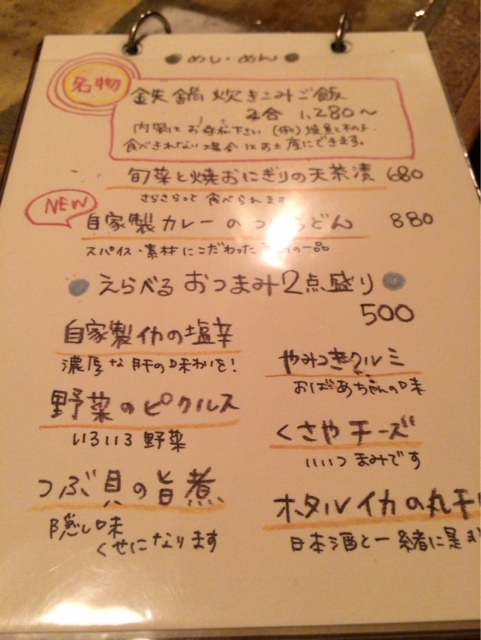 めし・めん
名物
鉄鍋炊きこみご飯
2合 1,280〜
内容はお尋ね下さい (例) 焼魚ときのこ
食べきれない場合はお土産にできます。
旬菜と焼おにぎりの天茶漬 680
さらさらっと食べられます
NEW
自家製カレーのつ うどん 880
スパイス・素材にこだわった の一品
えらべるおつまみ2点盛り
500
自家製イカの塩辛
濃厚な肝の味わいを!
やみつきクルミ
おばあちゃんの味
野菜のピクルス
いろいろ野菜
くさやチーズ
いいつまみです
つぶ貝の旨煮
隠し味
くせになります
ホタルイカの丸干
日本酒と一緒に是非